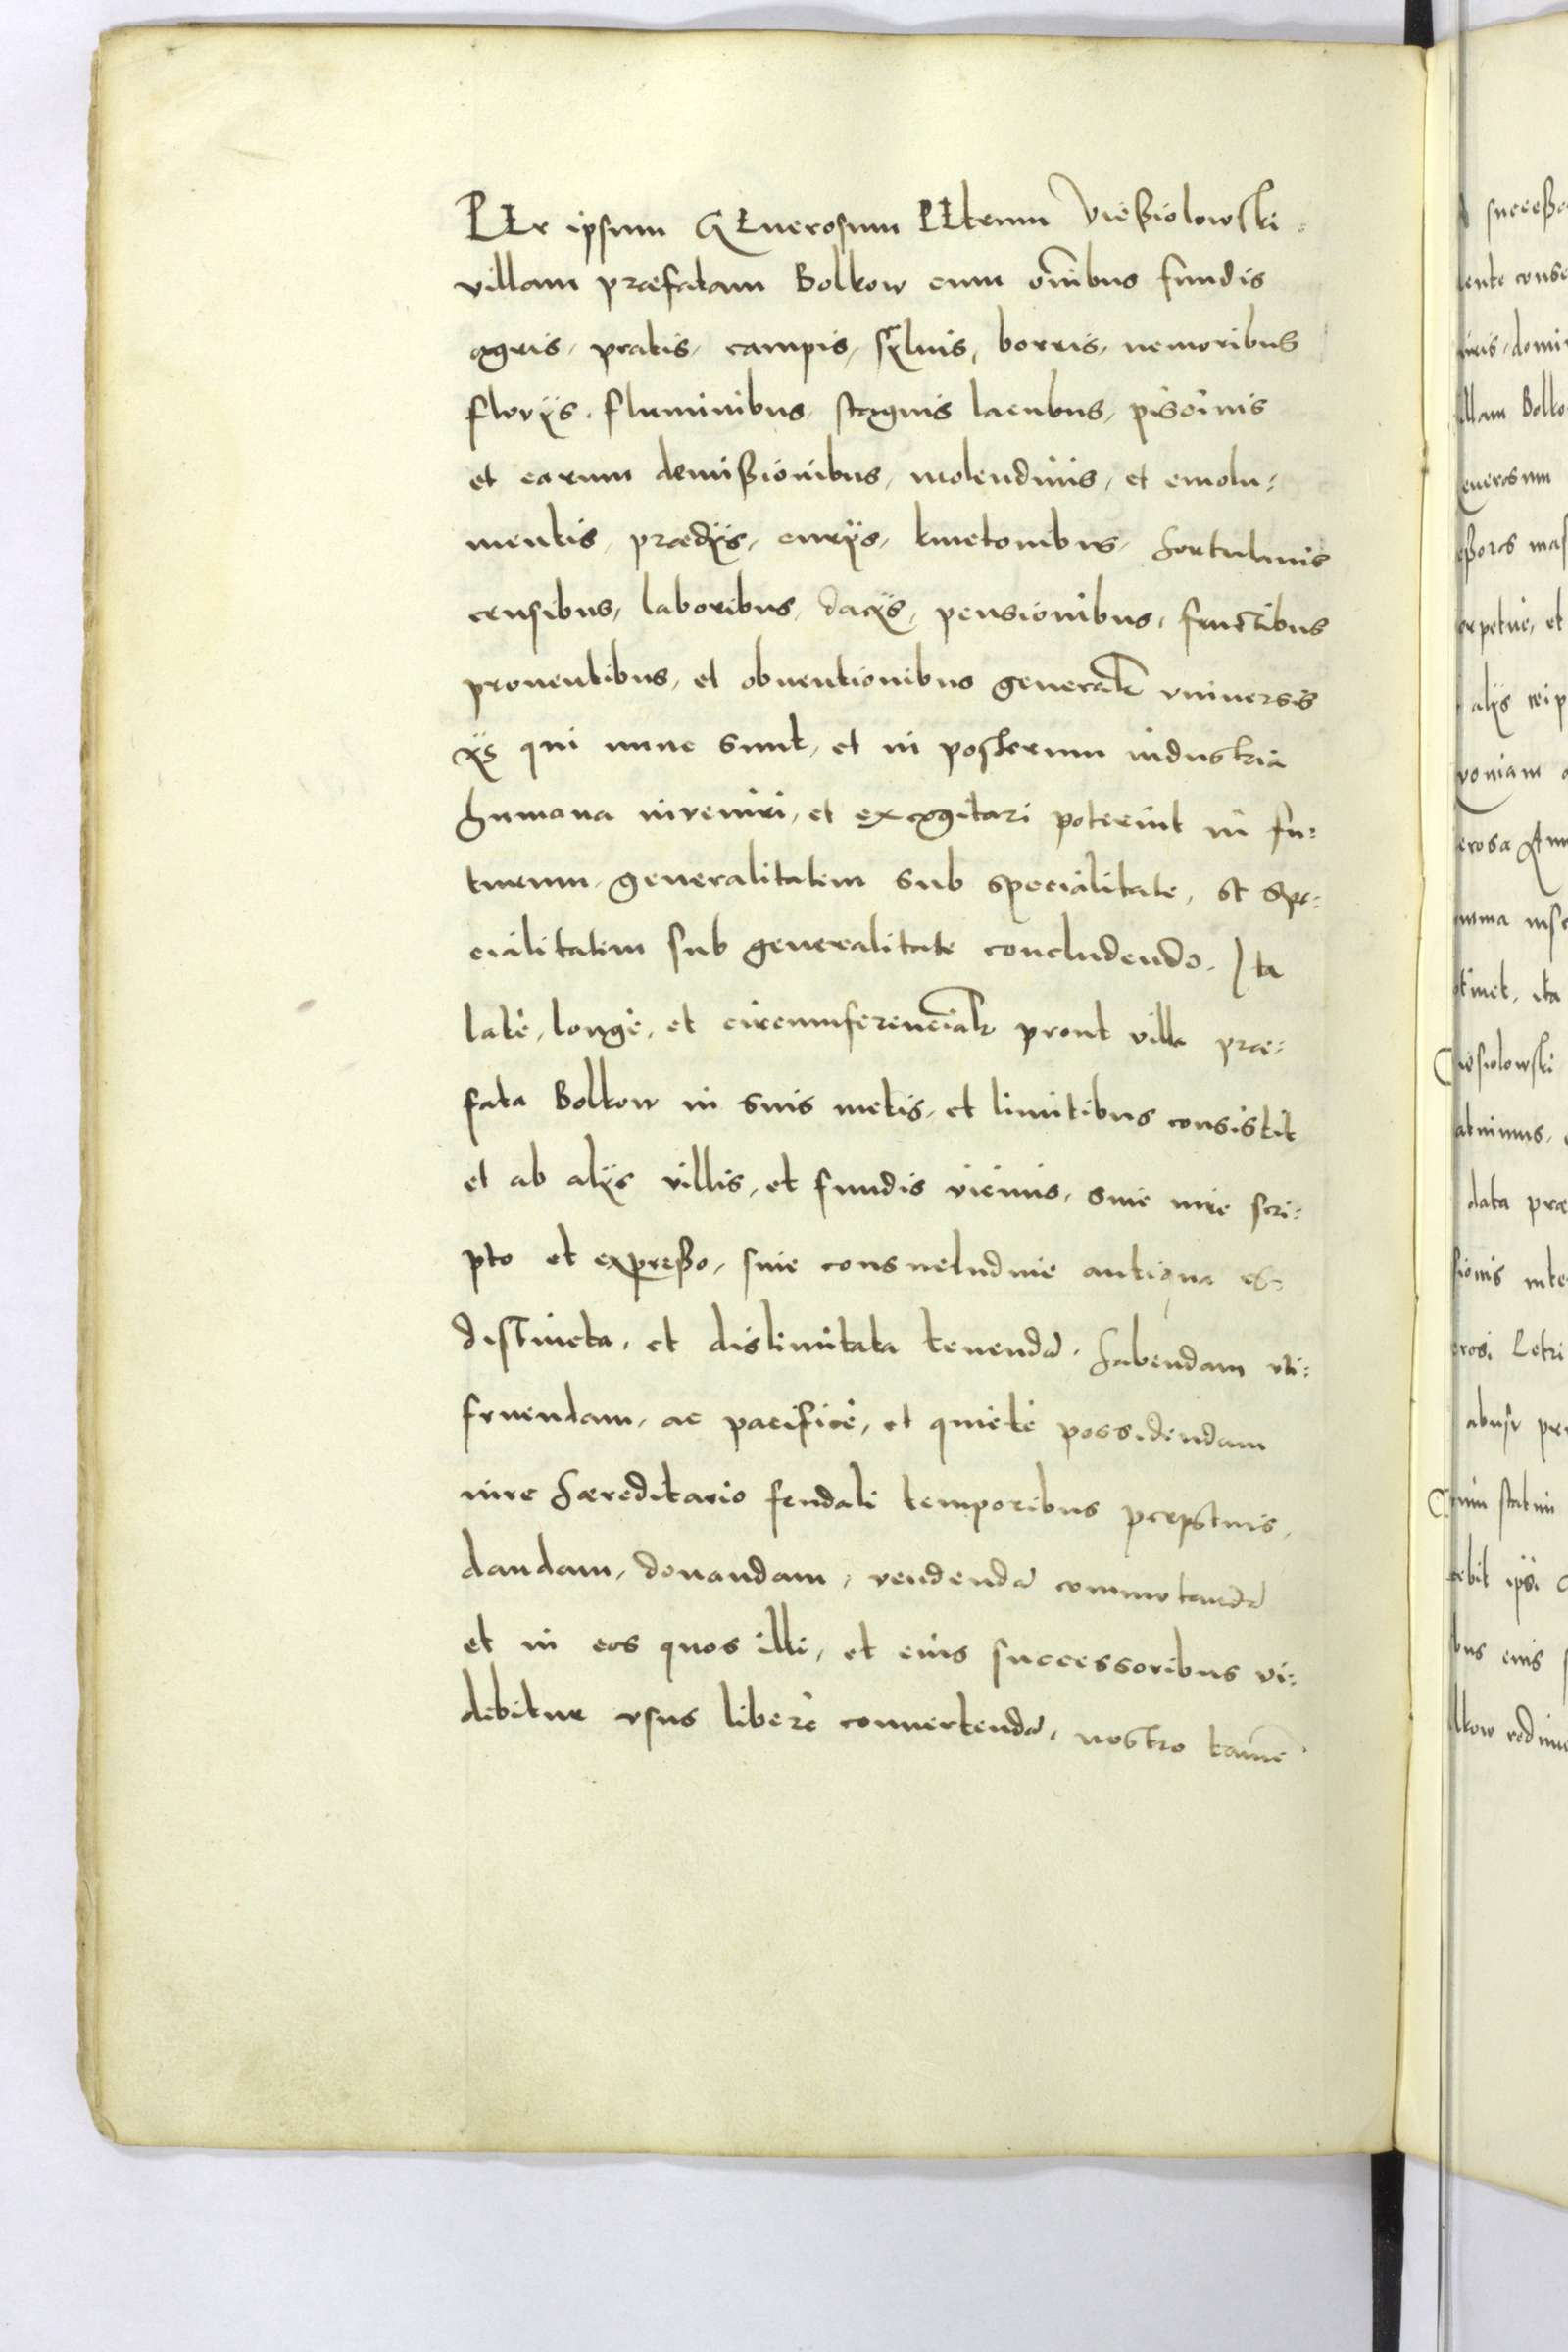 PEr ipsum GEnerosum PEtrum Vießiolowski.
villam præfatam Bolkow cum oĩnibus fundis
agris, pratis, campis, sÿluis, borris, nemoribus
fluvijs, fluminibus, stagnis lacubus, piscinis
et earum demißionibus, molendinis, et emolu-
mentis, prædijs, curijs, kmetonibus, hortulanis
censibus, laboribus, dacijs, pensionibus, fructibus
prouentibus, et obuentionibus generalr̃ vniuersis
ijs qui nunc sunt, et in posterum industria
humana inveniri, et excogitari poterint in fu-
turum, generalitatem sub specialitate, et spe-
cialitatem sub generalitate concludendo. Ita
latè, longè, et circumferencialr̃ prout villa præ-
fata Bolkow in suis metis, et limitibus consistit
et ab alijs villis, et fundis vicinis, siue iure scri-
pto et expreßo, siue consuetudine antiqua est
distincta, et dislimitata tenendã, habendam uti-
fruendam, ac pacificè, et quietè possidendam
iure hæreditario feudali temporibus perpetuis,
dandam, donandam, vendendã commutandã
et in eos quos illi, et eius successoribus vi-
debitur vsus liberè conuertendã, nostro tamẽ
successo
iris, domi
illam Bolko
enerosum
eßores mas
erpetuè, et
alijs reip
voniam
iesiolowski
data præ
abusr
ebit ipsi
bus eius
lkow redim